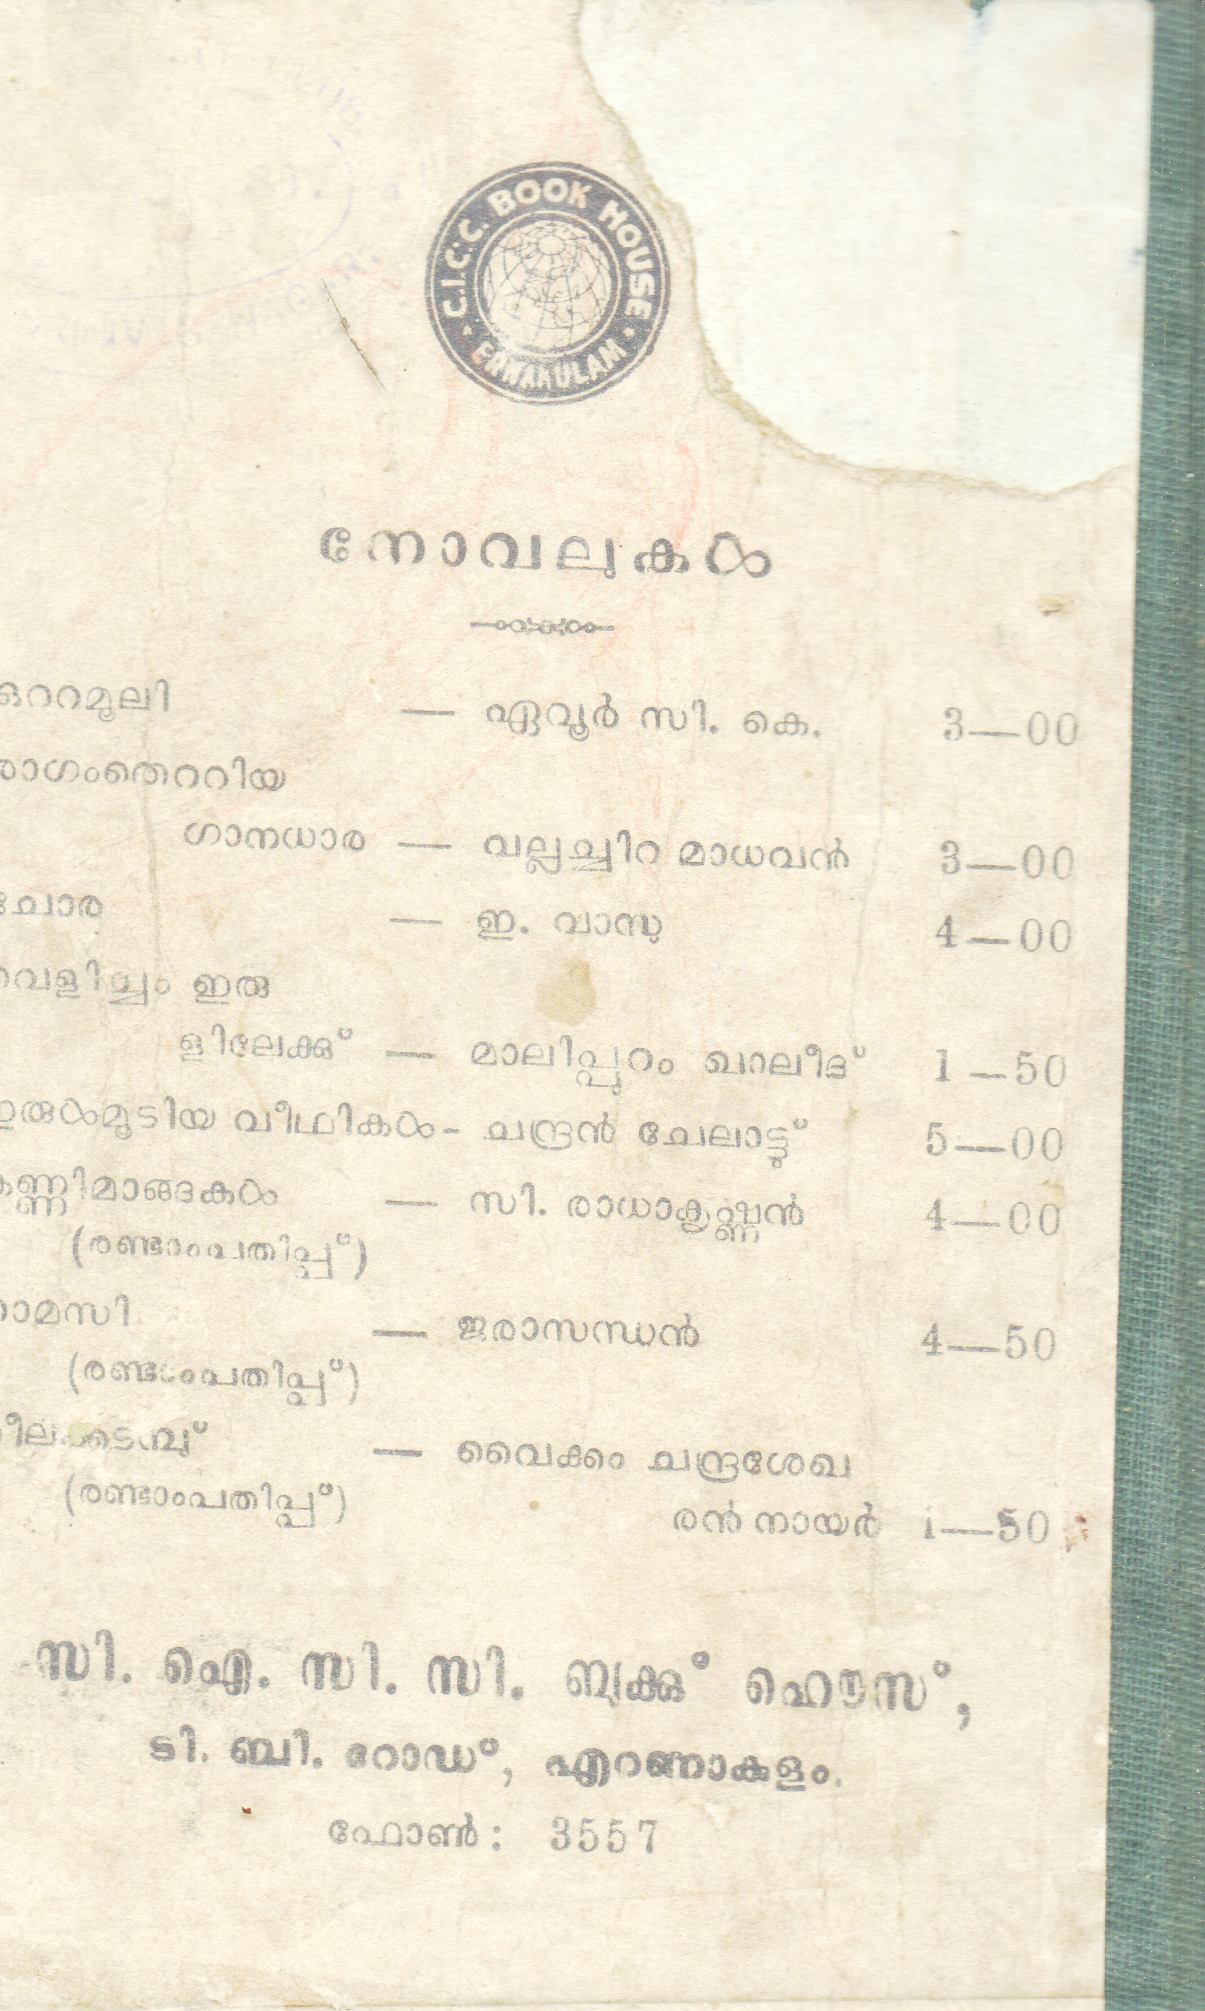 C.I.C.C. BOOK HOUSE
ERNAKULAM
നോവലുകൾ
ഒററമൂലി — ഏവൂർ സി. കെ. 3—00
രാഗംതെററിയ
ഗാനധാര — വല്ലച്ചിറ മാധവൻ 3—00
ചോര — ഇ. വാസു 4—00
വെളിച്ചം ഇരു
ളിലേക്കു് — മാലിപ്പുറം ഖാലീദ് 1—50
ഇരുൾമൂടിയ വീഥികൾ - ചന്ദ്രൻ ചേലാട്ടു് 5—00
കണ്ണിമാങ്ങകൾ — സി. രാധാകൃഷ്ണൻ 4—00
(രണ്ടാംപതിപ്പ്)
— ജരാസന്ധൻ 4—50
(രണ്ടാംപതിപ്പ്)
— വൈക്കം ചന്ദ്രശേഖ
(രണ്ടാംപതിപ്പ്) രൻ നായർ 1—50
സി. ഐ. സി. സി. ബുക്കു് ഹൌസ്,
ടി. ബി. റോഡ്, എറണാകുളം.
ഫോൺ: 3557